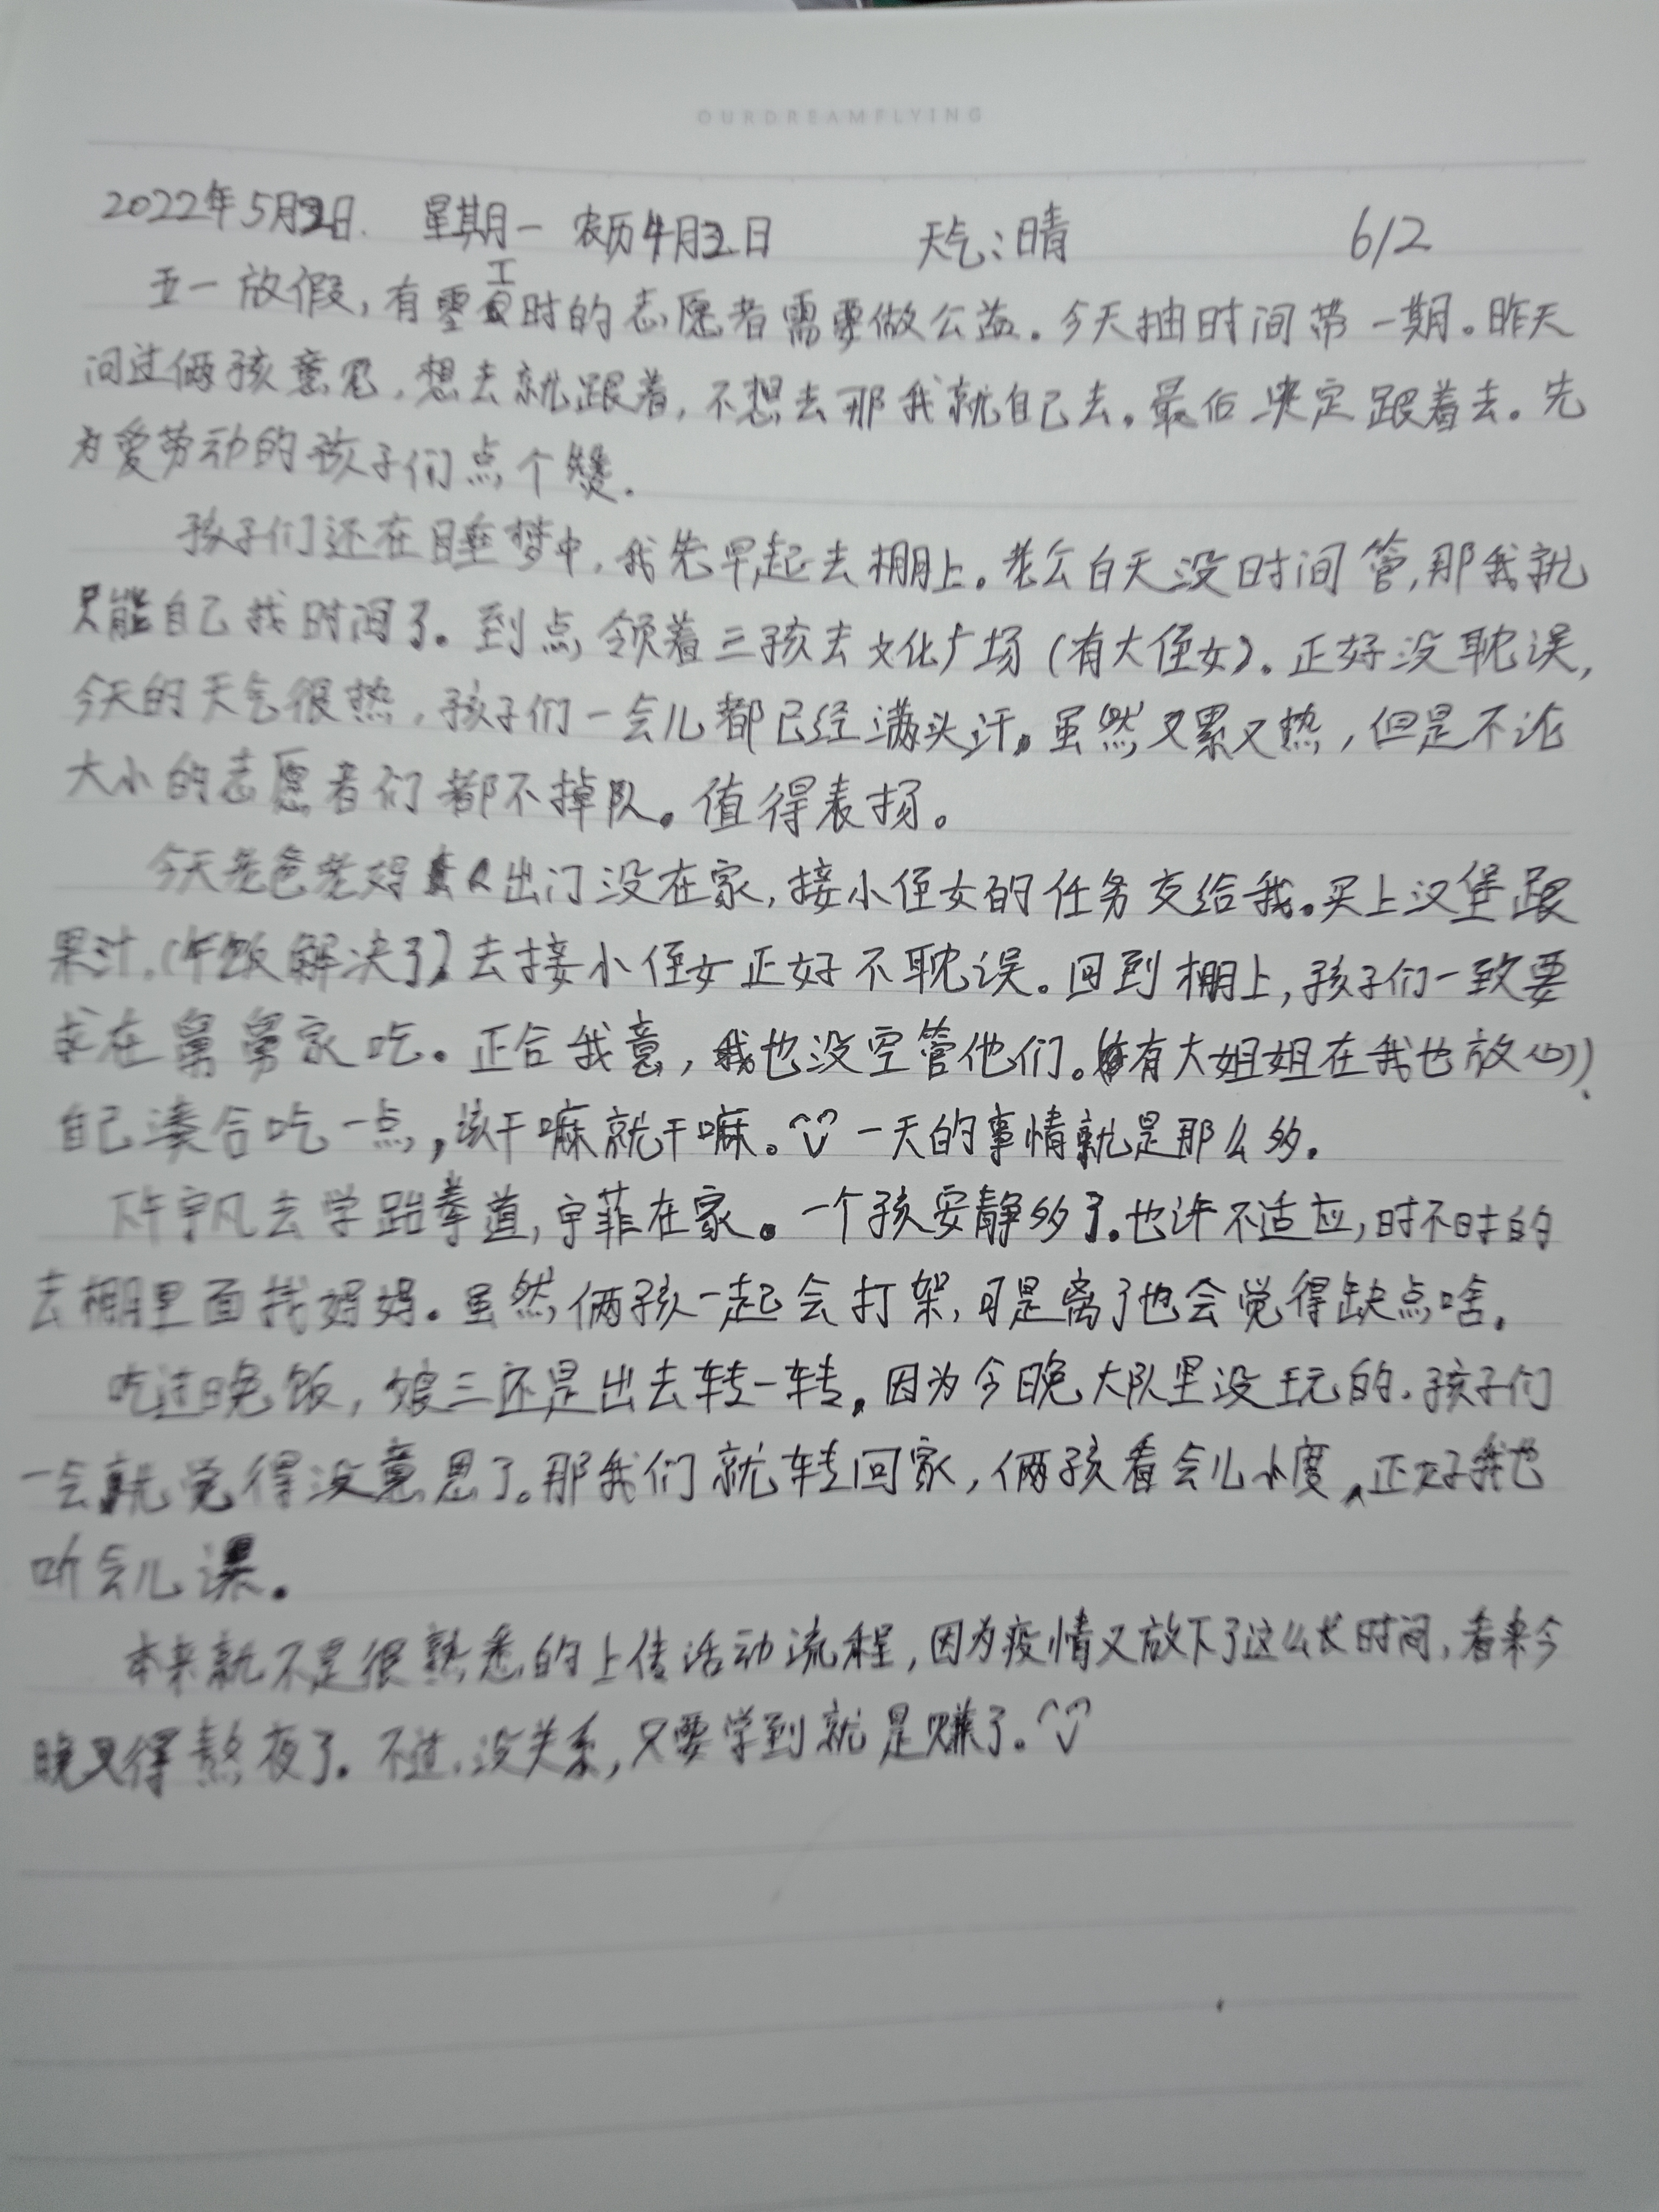 OURDREAMFLYING
2022年5月2日. 星期一 农历4月2日 天气:晴 612
五一放假,有零工时的志愿者需要做公益。今天抽时间带一期。昨天
问过俩孩意见,想去就跟着,不想去那我就自己去。最后决定跟着去。先
为爱劳动的孩子们点个赞.
孩子们还在睡梦中,我先早起去棚上。老公白天没时间管,那我就
只能自己找时间了。到点领着三孩去文化广场(有大侄女)。正好没耽误,
今天的天气很热,孩子们一会儿都已经满头汗。虽然又累又热,但是不论
大小的志愿者们都不掉队。值得表扬。
今天老爸老妈出门没在家,接小侄女的任务交给我。买上汉堡跟
果汁,(午饭解决了)去接小侄女正好不耽误。回到棚上,孩子们一致要
求在舅舅家吃。正合我意,我也没空管他们。(有大姐姐在我也放心)
自己凑合吃一点,该干嘛就干嘛。一天的事情就是那么多。
下午宇凡去学跆拳道,宇菲在家。一个孩安静多了。也许不适应,时不时的
去棚里面找妈妈。虽然俩孩一起会打架,可是离了也会觉得缺点啥。
吃过晚饭,娘三还是出去转一转。因为今晚大队里没玩的.孩子们
一会就觉得没意思了。那我们就转回家,俩孩看会儿小度,正好我也
听会儿课。
本来就不是很熟悉的上传活动流程,因为疫情又放下了这么长时间,看来今
晚又得熬夜了。不过,没关系,只要学到就是赚了。